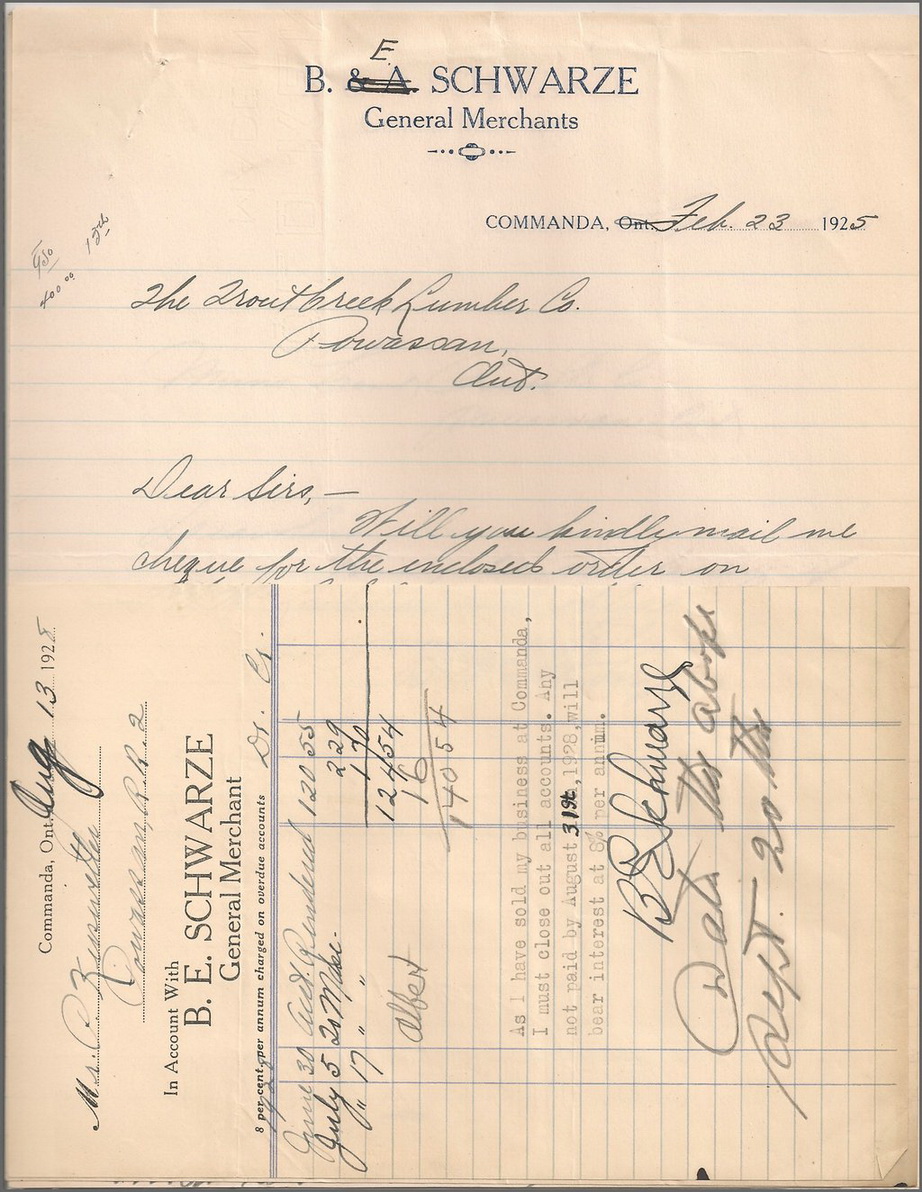 E.
B. & A. SCHWARZE
General Merchants
COMMANDA, Ont. Feb. 23 1925
1200
950
400.00
The Trout Creek Lumber Co.
Powassan,
Ont.
Dear Sirs,—
Will you kindly mail me
cheque for the enclosed order on
Commanda, Ont. Aug 13 1928
Mr. C
Powassan, R.R. 2
In Account With
B. E. SCHWARZE
General Merchant
8 per cent. per annum charged on overdue accounts
Dr. Cr.
June 30 Acct. Rendered 120 55
July 5 To Mdse. 2 29
" 17 " " 1 70
124 54
16
140 54
Albert
As I have sold my business at Commanda,
I must close out all accounts. Any
not paid by August 31st, 1928, will
bear interest at 8% per annum.
B E Schwarze
Date the above
Sept. 20 th